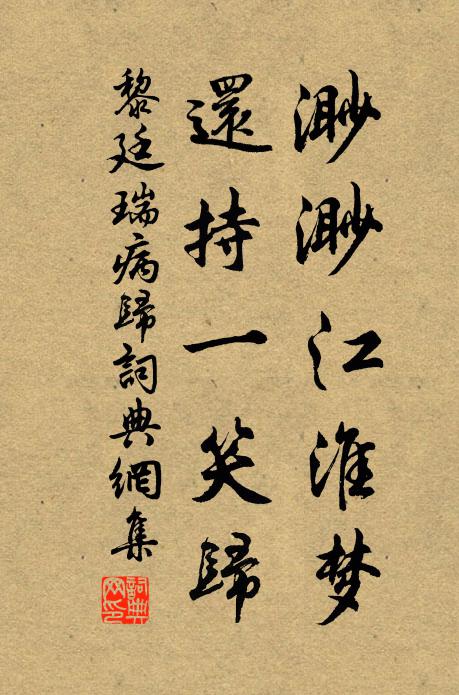 渺渺江淮梦
還持一笑歸
黎廷瑞病歸詞典網集
詞典网印